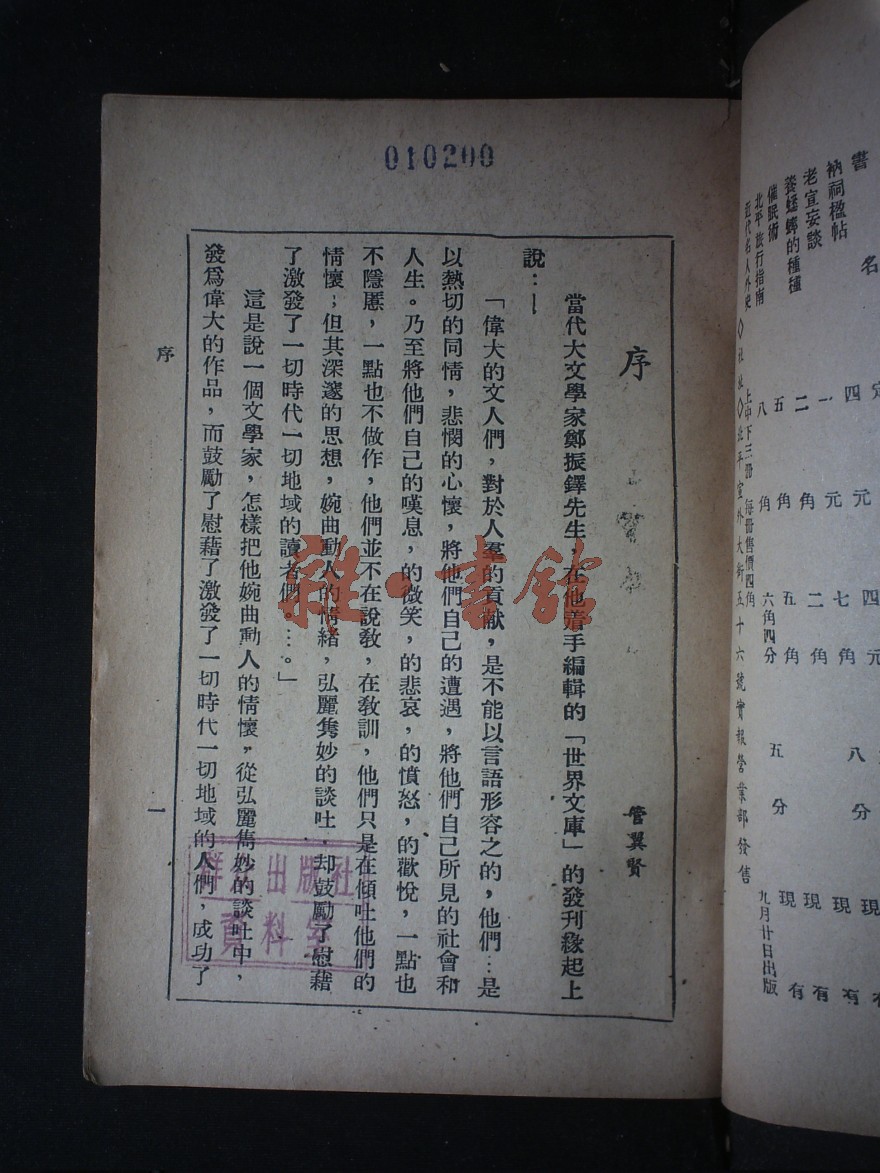 010200
序
管翼賢
當代大文學家鄭振鐸先生，在他着手編輯的「世界文庫」的發刊緣起上
說：—
「偉大的文人們，對於人羣的貢獻，是不能以言語形容之的，他們…是
以熱切的同情，悲憫的心懷，將他們自己的遭遇，將他們自己所見的社會和
人生。乃至將他們自己的嘆息，的微笑，的悲哀，的憤怒，的歡悅，一點也
不隱慝，一點也不做作，他們並不在說教，在教訓，他們只是在傾吐他們的
情懷；但其深邃的思想，婉曲動人的情緒，弘麗雋妙的談吐，却鼓勵了慰藉
了激發了一切時代一切地域的讀者們。…。」
這是說一個文學家，怎樣把他婉曲動人的情懷，從弘麗雋妙的談吐中，
發爲偉大的作品，而鼓勵了慰藉了激發了一切時代一切地域的人們，成功了
序
一
雜·書館
群出版社
資料室
書名
衲祠楹帖
老宣妄談
養蛐蛐的種種
催眠術
北平旅行指南
近代名人外史
上中下三冊 每冊售價四角
六角四分
◇社址◇北平宣外大街五十六號實報營業部發售
九月廿日出版